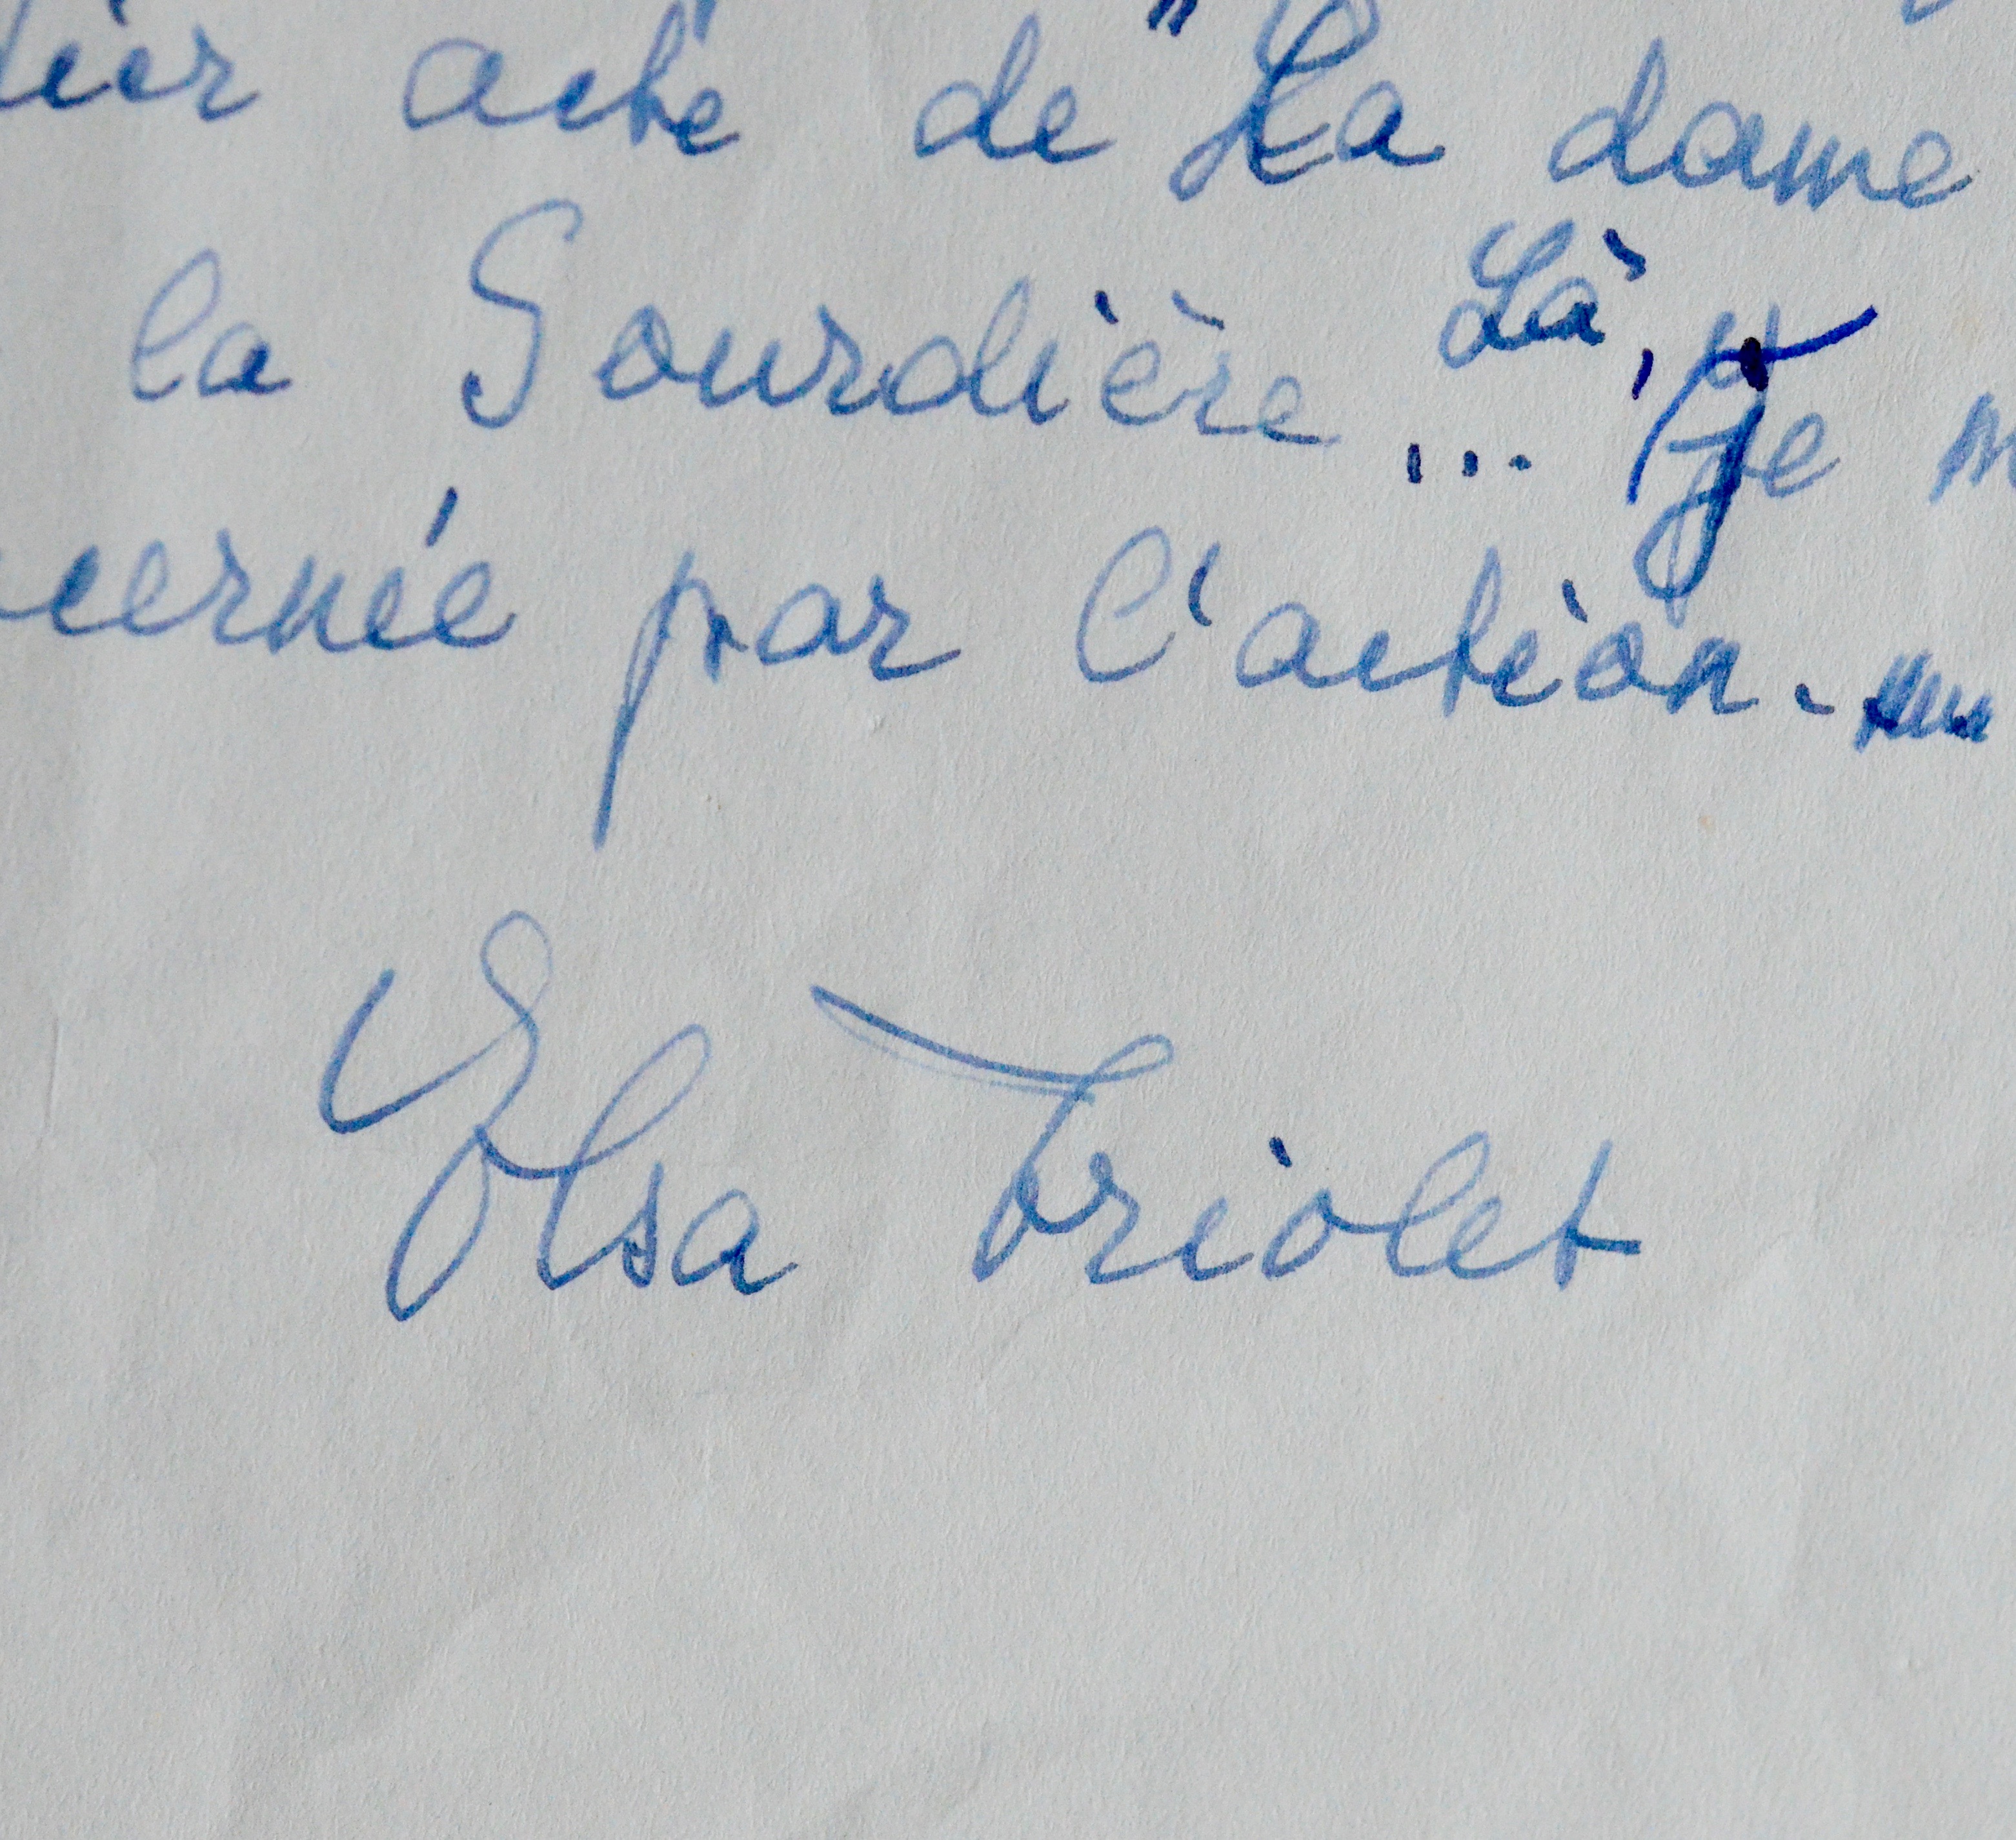 acte de "La dame
la Sourdière... Là, je
cernée par l'action.
Elsa Triolet